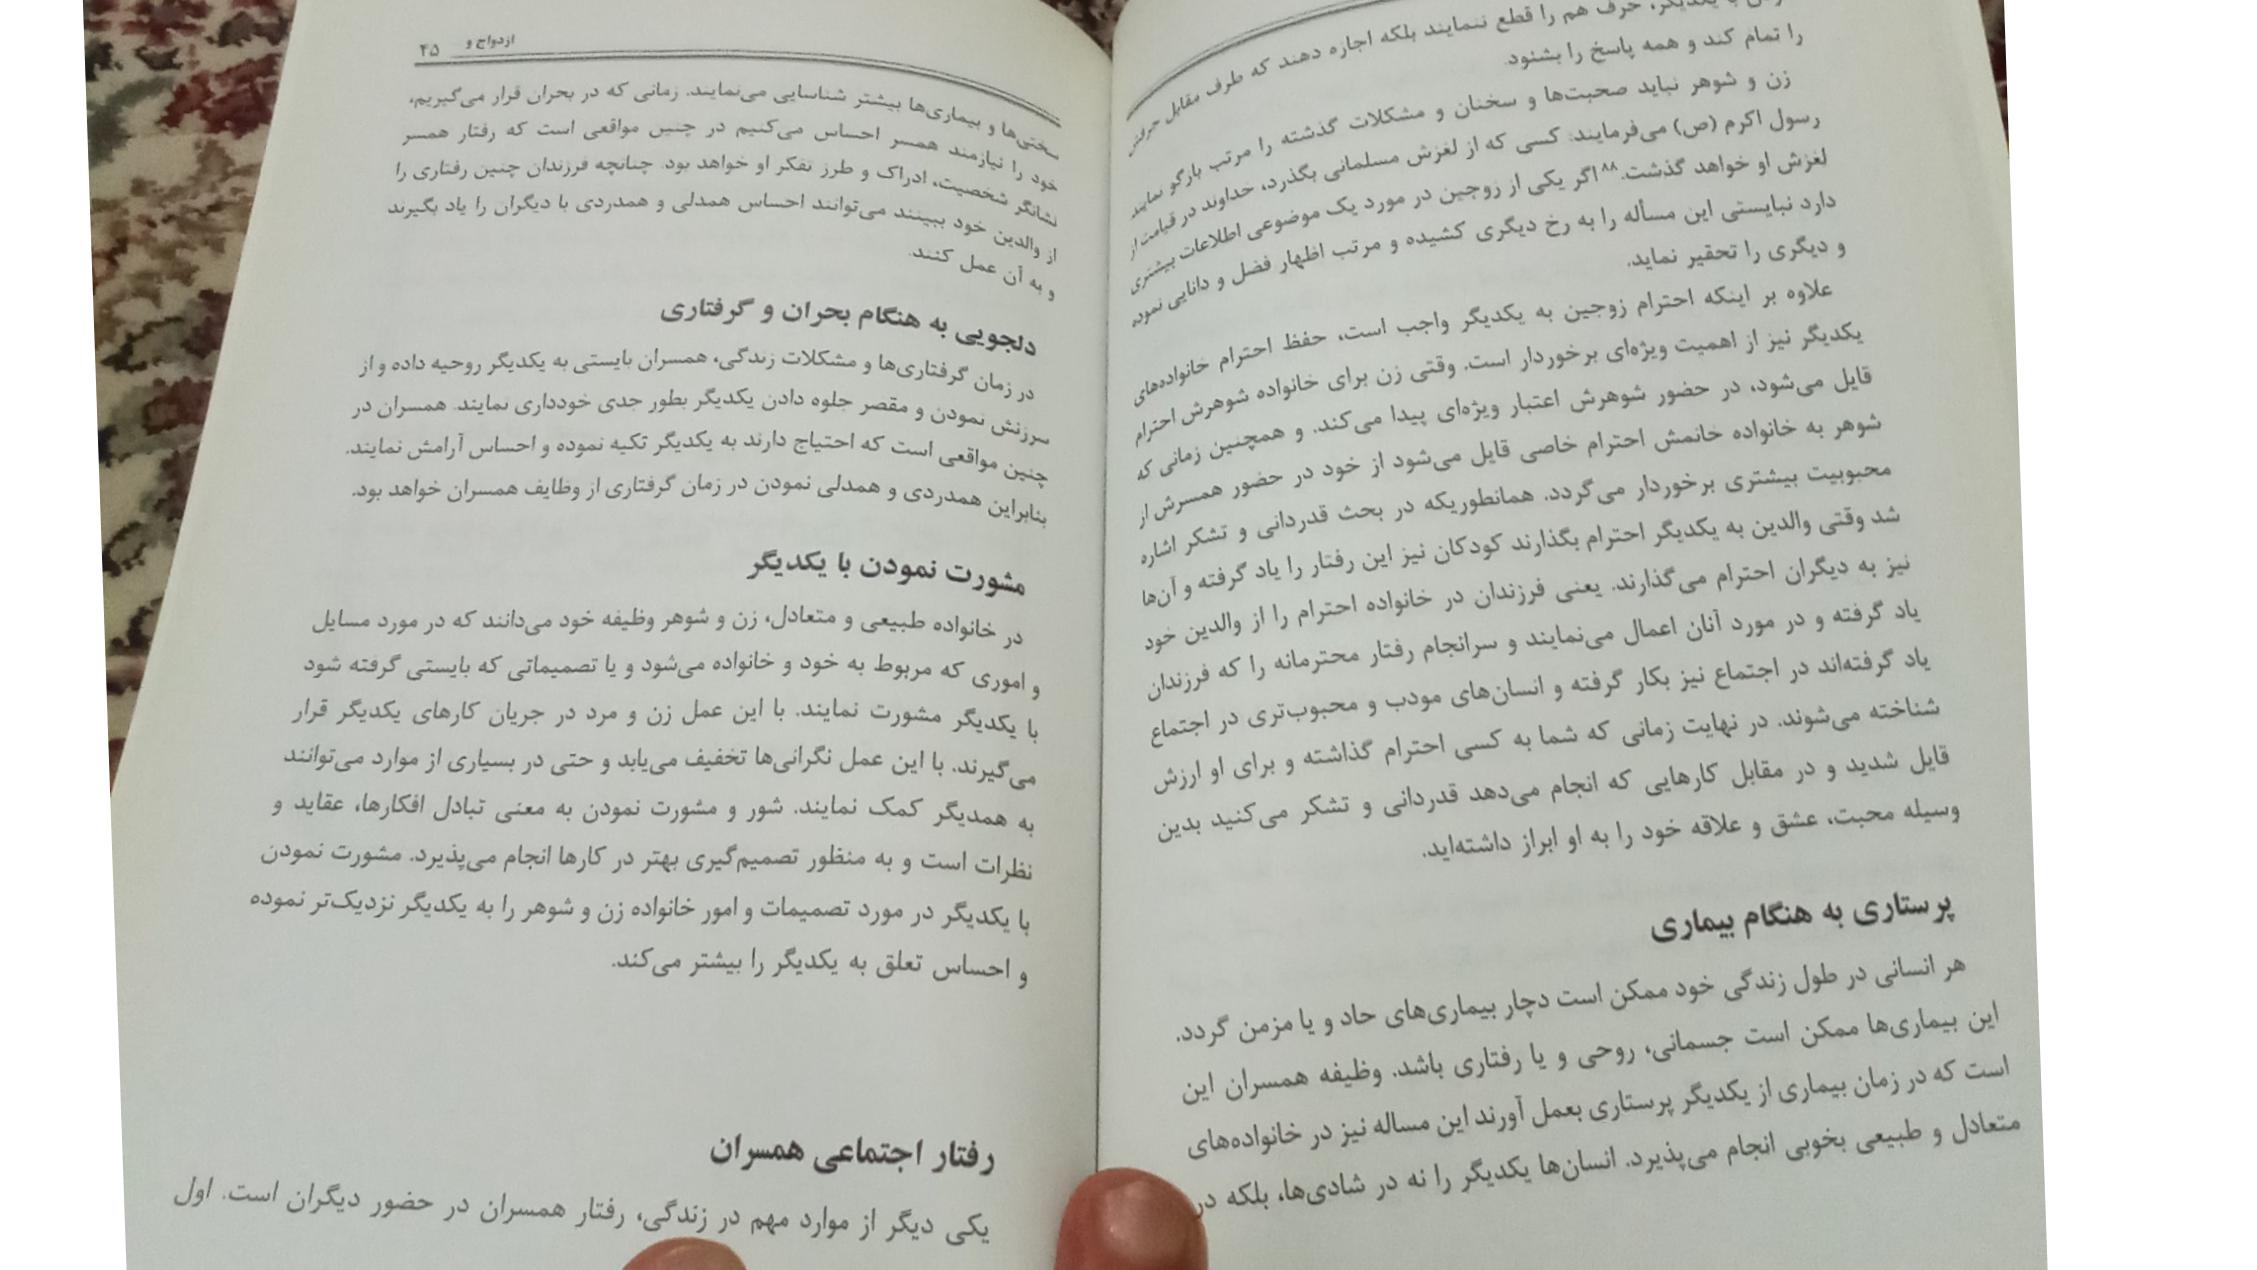 یکدیگر، حرف هم را قطع ننمایند بلکه اجازه دهند که طرف مقابل حرفش
را تمام کند و همه پاسخ را بشنود.
زن و شوهر نباید صحبت‌ها و سخنان و مشکلات گذشته را مرتب بازگو نمایند.
رسول اکرم (ص) می‌فرمایند: کسی که از لغزش مسلمانی بگذرد، خداوند در قیامت از
لغزش او خواهد گذشت.۸۸ اگر یکی از زوجین در مورد یک موضوعی اطلاعات بیشتری
دارد نبایستی این مسأله را به رخ دیگری کشیده و مرتب اظهار فضل و دانایی نموده
و دیگری را تحقیر نماید.
علاوه بر اینکه احترام زوجین به یکدیگر واجب است، حفظ احترام خانواده‌های
یکدیگر نیز از اهمیت ویژه‌ای برخوردار است. وقتی زن برای خانواده شوهرش احترام
قایل می‌شود، در حضور شوهرش اعتبار ویژه‌ای پیدا می‌کند. و همچنین زمانی که
شوهر به خانواده خانمش احترام خاصی قایل می‌شود از خود در حضور همسرش از
محبوبیت بیشتری برخوردار می‌گردد. همانطوریکه در بحث قدردانی و تشکر اشاره
شد وقتی والدین به یکدیگر احترام بگذارند کودکان نیز این رفتار را یاد گرفته و آن‌ها
نیز به دیگران احترام می‌گذارند. یعنی فرزندان در خانواده احترام را از والدین خود
یاد گرفته و در مورد آنان اعمال می‌نمایند و سرانجام رفتار محترمانه را که فرزندان
یاد گرفته‌اند در اجتماع نیز بکار گرفته و انسان‌های مودب و محبوب‌تری در اجتماع
شناخته می‌شوند. در نهایت زمانی که شما به کسی احترام گذاشته و برای او ارزش
قایل شدید و در مقابل کارهایی که انجام می‌دهد قدردانی و تشکر می‌کنید بدین
وسیله محبت، عشق و علاقه خود را به او ابراز داشته‌اید.
پرستاری به هنگام بیماری
هر انسانی در طول زندگی خود ممکن است دچار بیماری‌های حاد و یا مزمن گردد.
این بیماری‌ها ممکن است جسمانی، روحی و یا رفتاری باشد. وظیفه همسران این
است که در زمان بیماری از یکدیگر پرستاری بعمل آورند این مساله نیز در خانواده‌های
متعادل و طبیعی بخوبی انجام می‌پذیرد. انسان‌ها یکدیگر را نه در شادی‌ها، بلکه در
ازدواج و ۴۵
سختی‌ها و بیماری‌ها بیشتر شناسایی می‌نمایند. زمانی که در بحران قرار می‌گیریم،
خود را نیازمند همسر احساس می‌کنیم در چنین مواقعی است که رفتار همسر
نشانگر شخصیت، ادراک و طرز تفکر او خواهد بود. چنانچه فرزندان چنین رفتاری را
از والدین خود ببینند می‌توانند احساس همدلی و همدردی با دیگران را یاد بگیرند
و به آن عمل کنند.
دلجویی به هنگام بحران و گرفتاری
در زمان گرفتاری‌ها و مشکلات زندگی، همسران بایستی به یکدیگر روحیه داده و از
سرزنش نمودن و مقصر جلوه دادن یکدیگر بطور جدی خودداری نمایند. همسران در
چنین مواقعی است که احتیاج دارند به یکدیگر تکیه نموده و احساس آرامش نمایند.
بنابراین همدردی و همدلی نمودن در زمان گرفتاری از وظایف همسران خواهد بود.
مشورت نمودن با یکدیگر
در خانواده طبیعی و متعادل، زن و شوهر وظیفه خود می‌دانند که در مورد مسایل
و اموری که مربوط به خود و خانواده می‌شود و یا تصمیماتی که بایستی گرفته شود
با یکدیگر مشورت نمایند. با این عمل زن و مرد در جریان کارهای یکدیگر قرار
می‌گیرند. با این عمل نگرانی‌ها تخفیف می‌یابد و حتی در بسیاری از موارد می‌توانند
به همدیگر کمک نمایند. شور و مشورت نمودن به معنی تبادل افکارها، عقاید و
نظرات است و به منظور تصمیم‌گیری بهتر در کارها انجام می‌پذیرد. مشورت نمودن
با یکدیگر در مورد تصمیمات و امور خانواده زن و شوهر را به یکدیگر نزدیک‌تر نموده
و احساس تعلق به یکدیگر را بیشتر می‌کند.
رفتار اجتماعی همسران
یکی دیگر از موارد مهم در زندگی، رفتار همسران در حضور دیگران است. اول